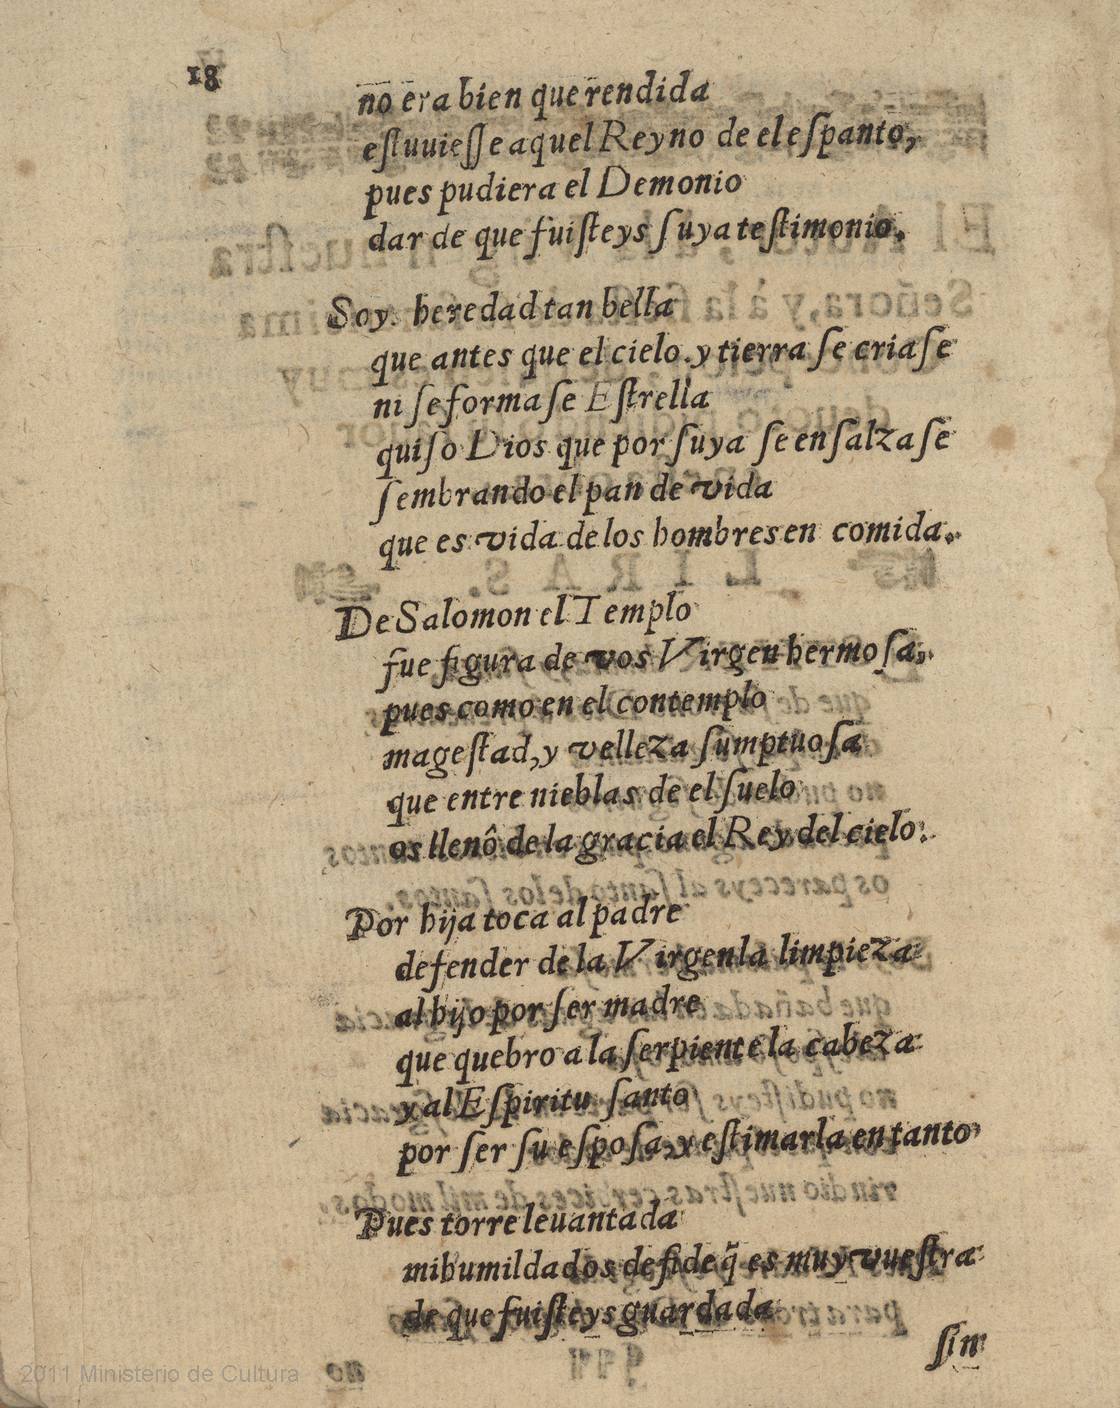 18
no era bien que rendida
eſtuuieſſe aquel Reyno de el eſpanto,
pues pudiera el Demonio
dar de que fuiſteys ſuya teſtimonio.
Soy heredad tan bella
que antes que el cielo y tierra ſe criaſe
ni ſe formaſe Eſtrella
quiſo Dios que por ſuya ſe enſalzaſe
ſembrando el pan de vida
que es vida de los hombres en comida.
De Salomon el Templo
fue figura de vos Virgen hermoſa,
pues como en el contemplo
mageſtad, y velleza ſumptuoſa
que entre nieblas de el ſuelo
os llenô de la gracia el Rey del cielo.
Por hija toca al padre
defender de la Virgen la limpieza
al hijo por ſer madre
que quebro a la ſerpiente la cabeza
y al Eſpiritu ſanto
por ſer ſu eſpoſa y eſtimarla en tanto
Pues torre leuantada
mi humildad os defide q̃ es muy vueſtra
de que fuiſteys guardada
ſin
2011 Ministerio de Cultura